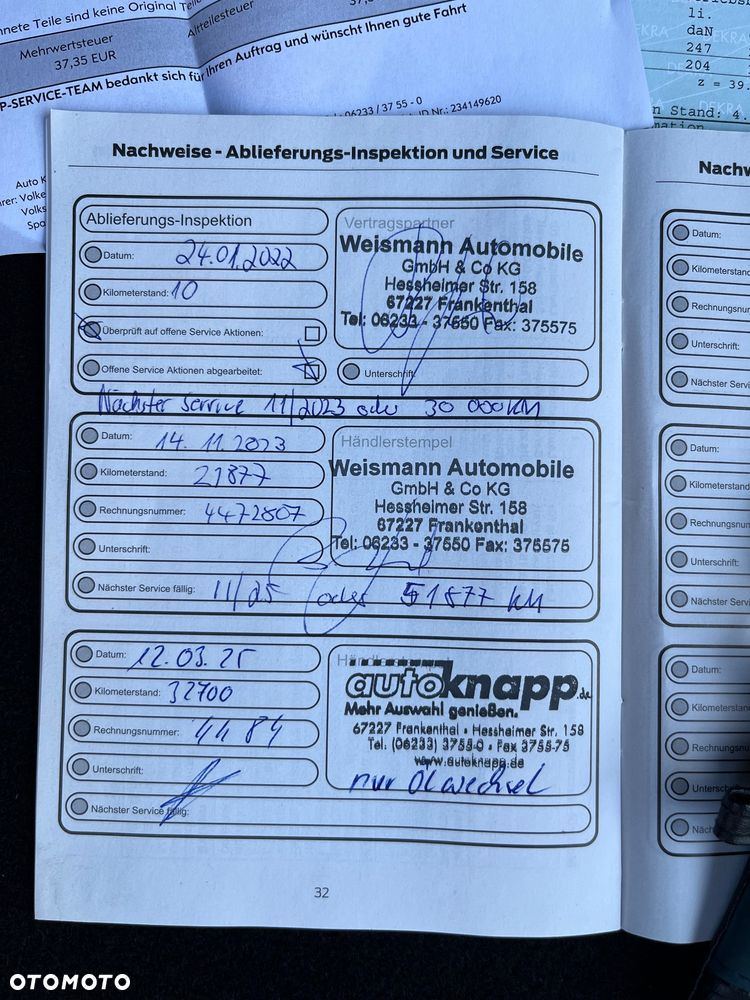 hnete Teile sind keine Original
Altteilesteuer
Mehrwertsteuer
37,35 EUR
P-SERVICE-TEAM bedankt sich für Ihren Auftrag und wünscht Ihnen gute Fahrt
06233 / 37 55 - 0
ID Nr.: 234149620
Auto K
rer: Volke
Volks
Spa
li.
daN
247
204
z = 39.
n Stand: 4.
mation
DEKRA
Nachweise - Ablieferungs-Inspektion und Service
Ablieferungs-Inspektion
Datum: 24.01.2022
Kilometerstand: 10
Überprüft auf offene Service Aktionen:
Offene Service Aktionen abgearbeitet:
Vertragspartner
Weismann Automobile
GmbH & Co KG
Hessheimer Str. 158
67227 Frankenthal
Tel: 06233 - 37550 Fax: 375575
Unterschrift:
Nächster Service 11/2023 oder 30 000 KM
Datum: 14.11.2023
Kilometerstand: 21877
Rechnungsnummer: 4472807
Unterschrift:
Nächster Service fällig: 11/25 oder 51877 KM
Händlerstempel
Weismann Automobile
GmbH & Co KG
Hessheimer Str. 158
67227 Frankenthal
Tel: 06233 - 37550 Fax: 375575
Datum: 12.03.25
Kilometerstand: 32700
Rechnungsnummer: 4484
Unterschrift:
Nächster Service fällig:
autoknapp.de
Mehr Auswahl genießen.
67227 Frankenthal • Hessheimer Str. 158
Tel. (06233) 3755-0 • Fax 3755-75
www.autoknapp.de
nur Ölwechsel
32
Nachw
Datum:
Kilometerstand
Rechnungsnur
Unterschrift:
Nächster Servi
Datum:
Kilometerstand
Rechnungsnum
Unterschrift:
Nächster Servi
Datum:
Kilometerstan
Rechnungsnu
Unterschr
Näch
OTOMOTO